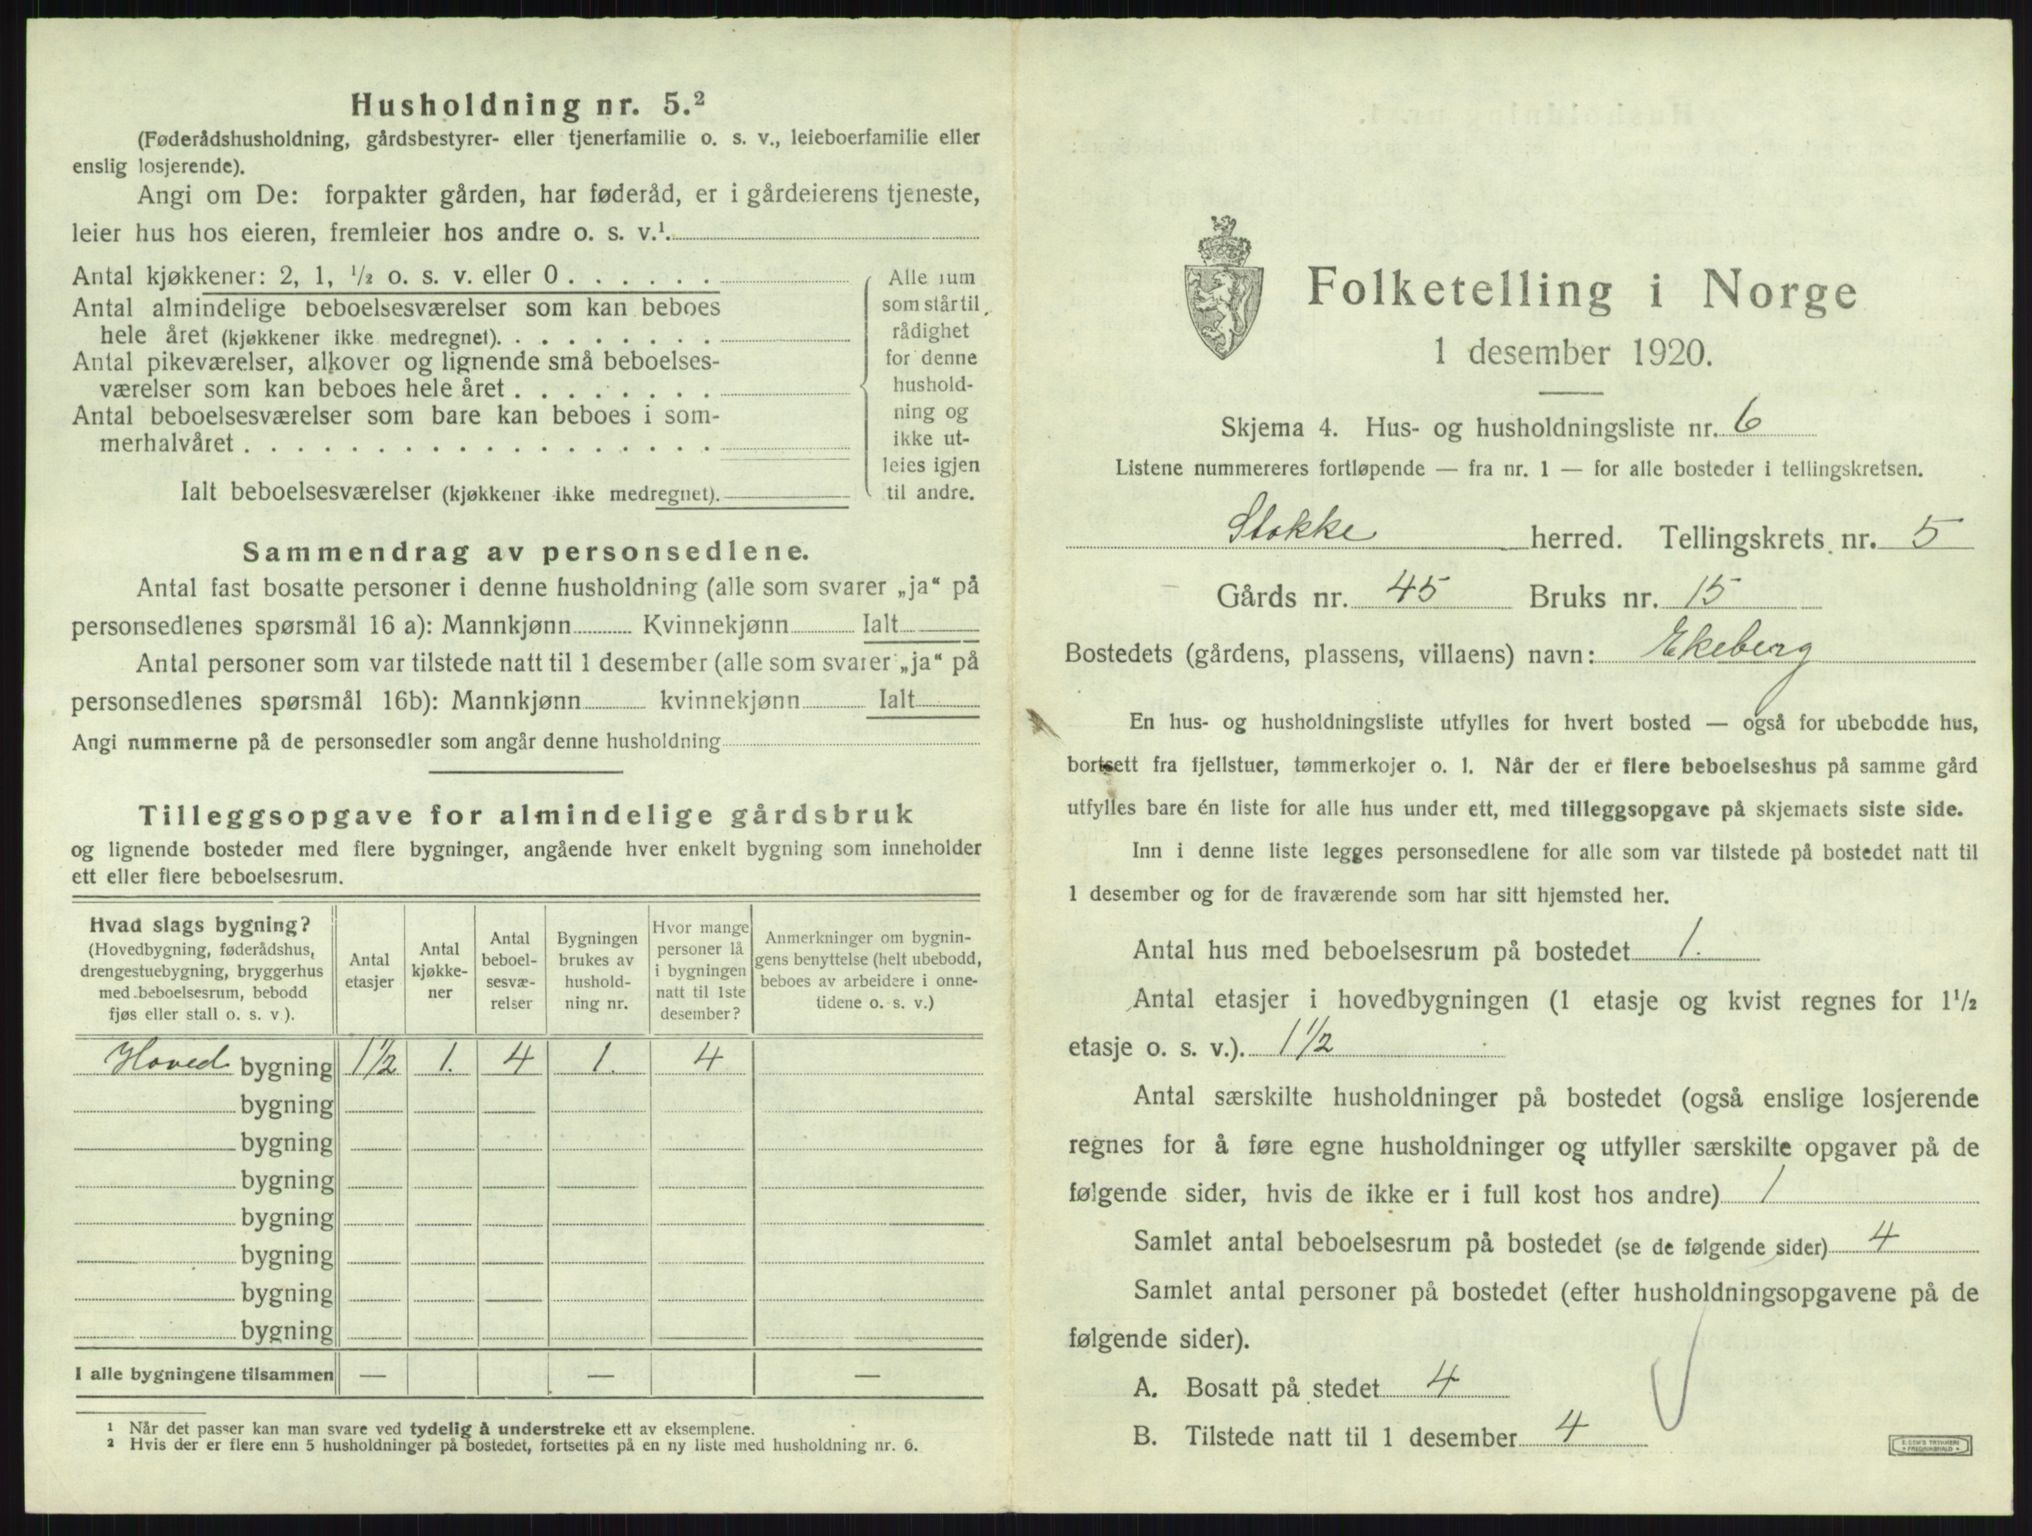 Husholdning nr. 5.²
(Føderådshusholdning, gårdsbestyrer- eller tjenerfamilie o. s. v., leieboerfamilie eller
enslig losjerende).
Angi om De: forpakter gården, har føderåd, er i gårdeierens tjeneste,
leier hus hos eieren, fremleier hos andre o. s. v.¹.
Antal kjøkkener: 2, 1, ½ o. s. v. eller 0 . . . . . .
Antal almindelige beboelsesværelser som kan beboes
hele året (kjøkkener ikke medregnet). . . . . . . . .
Antal pikeværelser, alkover og lignende små beboelses-
værelser som kan beboes hele året . . . . . . . .
Antal beboelsesværelser som bare kan beboes i som-
merhalvåret . . . . . . . . . . . . . . . . . .
Ialt beboelsesværelser (kjøkkener ikke medregnet).
Alle rum
som står til
rådighet
for denne
hushold-
ning og
ikke ut-
leies igjen
til andre.
Sammendrag av personsedlene.
Antal fast bosatte personer i denne husholdning (alle som svarer „ja“ på
personsedlenes spørsmål 16 a): Mannkjønn Kvinnekjønn Ialt
Antal personer som var tilstede natt til 1 desember (alle som svarer „ja“ på
personsedlenes spørsmål 16b): Mannkjønn kvinnekjønn Ialt
Angi nummerne på de personsedler som angår denne husholdning
Tilleggsopgave for almindelige gårdsbruk
og lignende bosteder med flere bygninger, angående hver enkelt bygning som inneholder
ett eller flere beboelsesrum.
Hvad slags bygning?
(Hovedbygning, føderådshus,
drengestuebygning, bryggerhus
med beboelsesrum, bebodd
fjøs eller stall o. s. v).
Antal
etasjer
Antal
kjøkke-
ner
Antal
beboel-
sesvæ-
relser
Bygningen
brukes av
hushold-
ning nr.
Hvor mange
personer lå
i bygningen
natt til 1ste
desember?
Anmerkninger om bygnin-
gens benyttelse (helt ubebodd,
beboes av arbeidere i onne-
tidene o. s. v.)
Hoved bygning 1½ 1. 4 1. 4
bygning
bygning
bygning
bygning
bygning
bygning
bygning
I alle bygningene tilsammen — — —
¹ Når det passer kan man svare ved tydelig å understreke ett av eksemplene.
² Hvis der er flere enn 5 husholdninger på bostedet, fortsettes på en ny liste med husholdning nr. 6.
Folketelling i Norge
1 desember 1920.
Skjema 4. Hus- og husholdningsliste nr. 6
Listene nummereres fortløpende — fra nr. 1 — for alle bosteder i tellingskretsen.
Stokke herred. Tellingskrets nr. 5
Gårds nr. 45 Bruks nr. 15
Bostedets (gårdens, plassens, villaens) navn: Ekeberg
En hus- og husholdningsliste utfylles for hvert bosted — også for ubebodde hus,
bortsett fra fjellstuer, tømmerkojer o. l. Når der er flere beboelseshus på samme gård
utfylles bare én liste for alle hus under ett, med tilleggsopgave på skjemaets siste side.
Inn i denne liste legges personsedlene for alle som var tilstede på bostedet natt til
1 desember og for de fraværende som har sitt hjemsted her.
Antal hus med beboelsesrum på bostedet 1.
Antal etasjer i hovedbygningen (1 etasje og kvist regnes for 1½
etasje o. s. v.). 1½
Antal særskilte husholdninger på bostedet (også enslige losjerende
regnes for å føre egne husholdninger og utfyller særskilte opgaver på de
følgende sider, hvis de ikke er i full kost hos andre) 1
Samlet antal beboelsesrum på bostedet (se de følgende sider) 4
Samlet antal personer på bostedet (efter husholdningsopgavene på de
følgende sider).
A. Bosatt på stedet 4
B. Tilstede natt til 1 desember 4